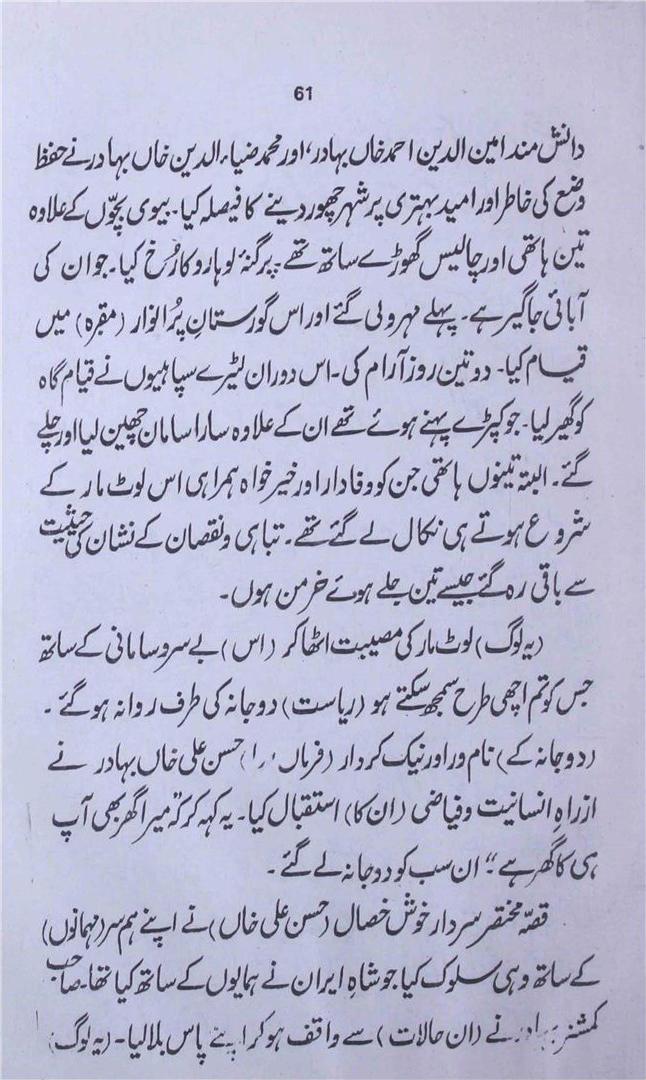 61
دانش مند امین الدین احمد خاں بہادر، اور محمد ضیاء الدین خاں بہادر نے حفظ
وضع کی خاطر اور امید بہتری پر شہر چھوڑ دینے کا فیصلہ کیا۔ بیوی بچّوں کے علاوہ
تین ہاتھی اور چالیس گھوڑے ساتھ تھے۔ پرگنۂ لوہارو کا رُخ کیا۔ جو ان کی
آبائی جاگیر ہے۔ پہلے مہرولی گئے اور اس گورستانِ پُر انوار (مقبرہ) میں
قیام کیا۔ دو تین روز آرام کی۔ اس دوران لٹیرے سپاہیوں نے قیام گاہ
کو گھیر لیا۔ جو کپڑے پہنے ہوئے تھے ان کے علاوہ سارا سامان چھین لیا اور چلے
گئے۔ البتہ تینوں ہاتھی جن کو وفادار اور خیر خواہ ہمراہی اس لوٹ مار کے
شروع ہوتے ہی نکال لے گئے تھے۔ تباہی و نقصان کے نشان کی حیثیت
سے باقی رہ گئے جیسے تین جلے ہوئے خرمن ہوں۔
(یہ لوگ) لوٹ مار کی مصیبت اٹھا کر (اس) بے سرو سامانی کے ساتھ
جس کو تم اچھی طرح سمجھ سکتے ہو (ریاست) دوجانہ کی طرف روانہ ہو گئے۔
(دوجانہ کے) نام ور اور نیک کردار (فرماں روا) حسن علی خاں بہادر نے
از راہِ انسانیت و فیاضی (ان کا) استقبال کیا۔ یہ کہہ کر کہ "میرا گھر بھی آپ
ہی کا گھر ہے" ان سب کو دوجانہ لے گئے۔
قصّہ مختصر سردار خوش خصال (حسن علی خاں) نے اپنے ہم سر (مہمانوں)
کے ساتھ وہی سلوک کیا جو شاہِ ایران نے ہمایوں کے ساتھ کیا تھا۔ صاحب
کمشنر بہادر نے (ان حالات) سے واقف ہو کر اپنے پاس بلا لیا۔ (یہ لوگ)